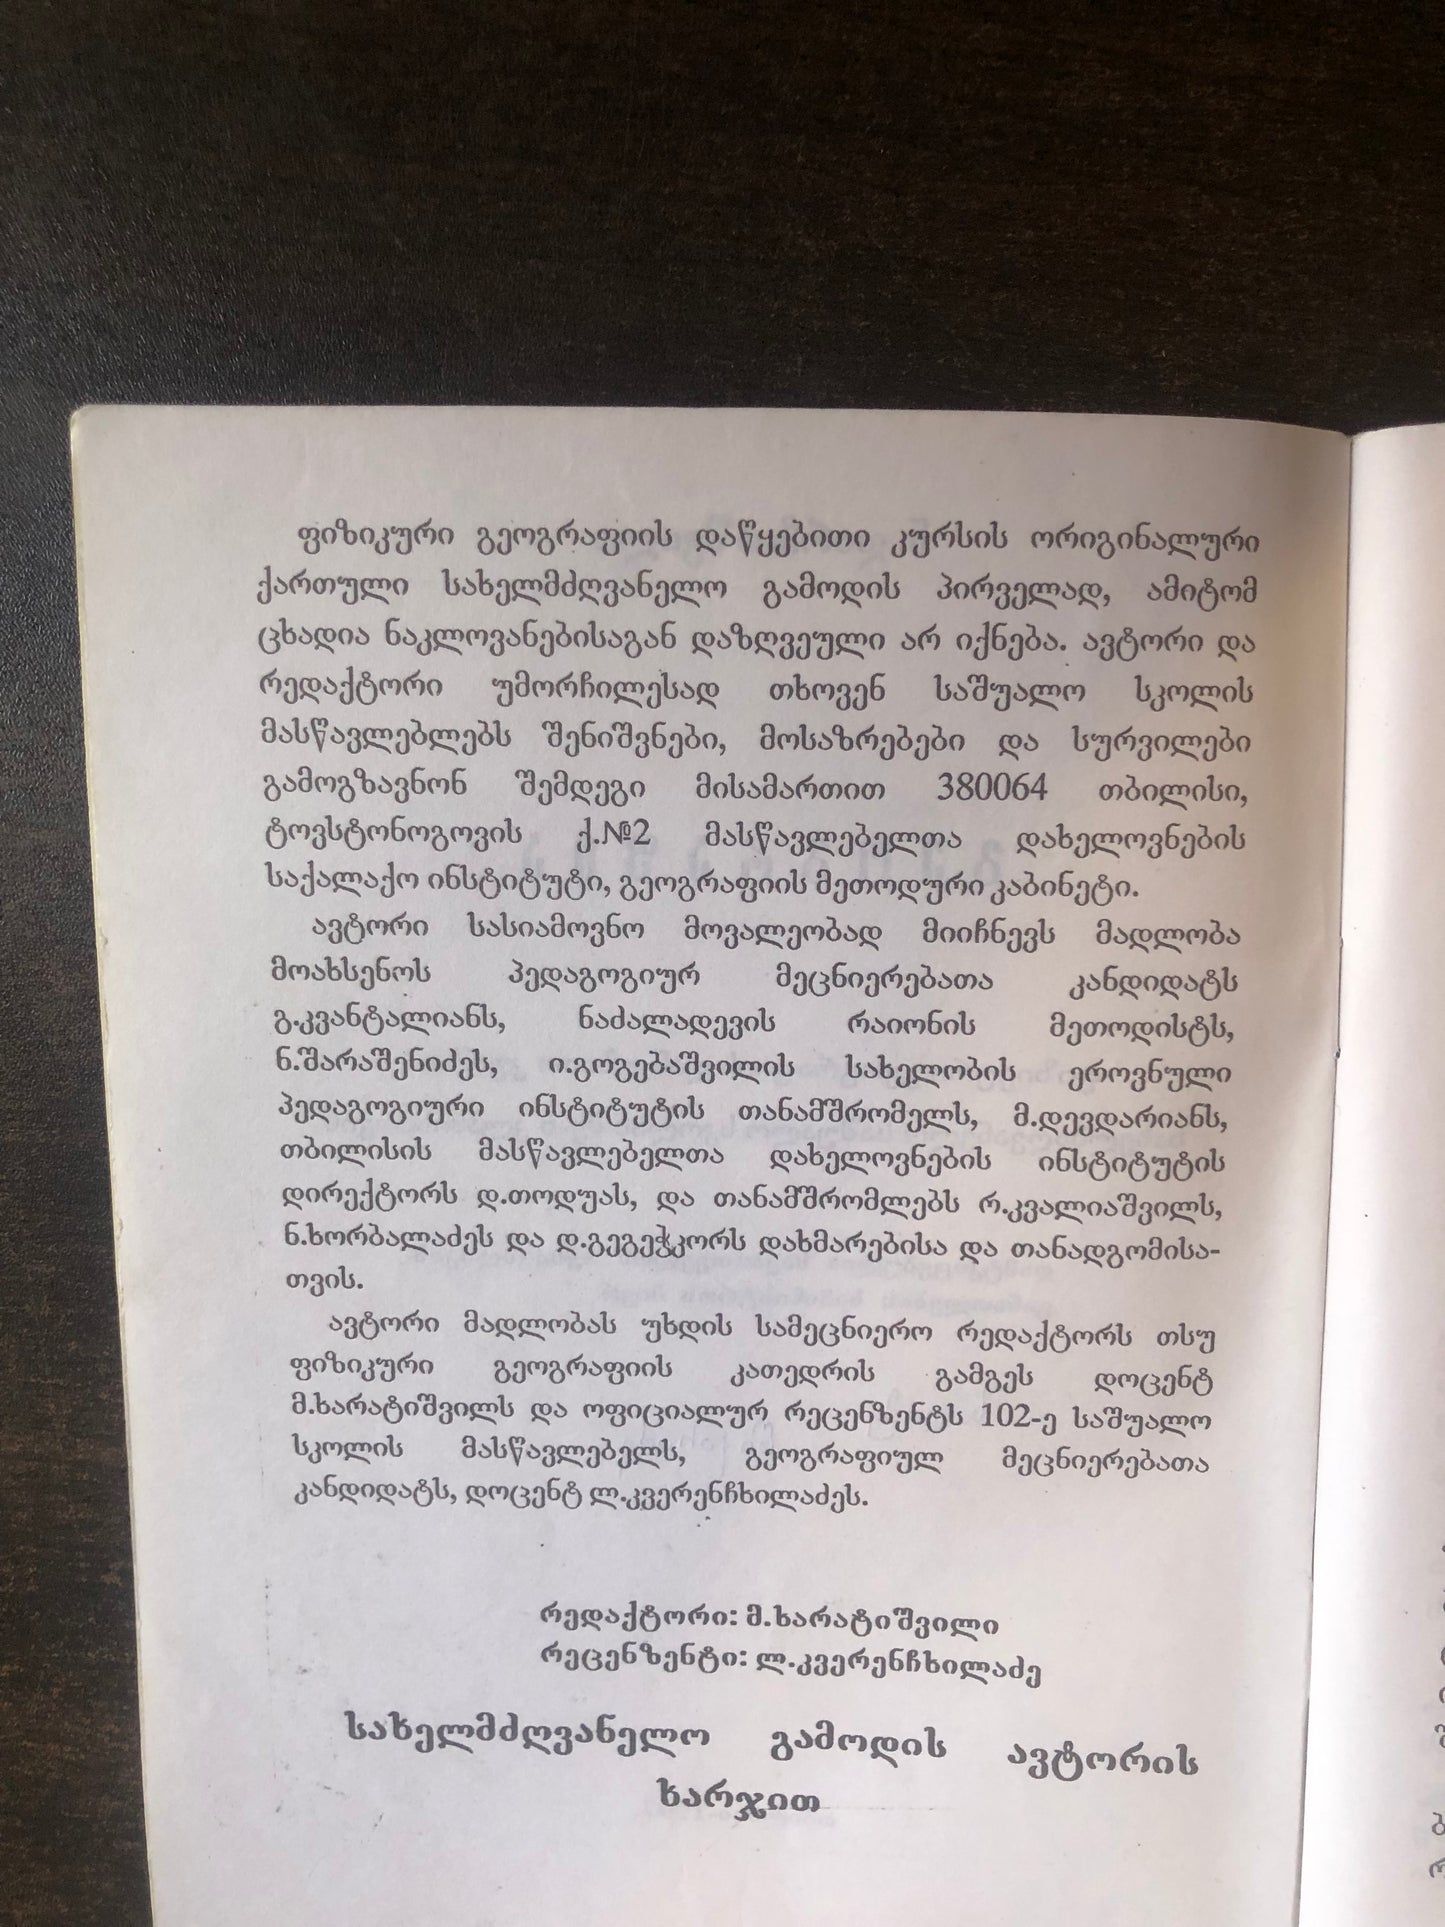 ფიზიკური გეოგრაფიის დაწყებითი კურსის ორიგინალური
ქართული სახელმძღვანელო გამოდის პირველად, ამიტომ
ცხადია ნაკლოვანებისაგან დაზღვეული არ იქნება. ავტორი და
რედაქტორი უმორჩილესად თხოვენ საშუალო სკოლის
მასწავლებლებს შენიშვნები, მოსაზრებები და სურვილები
გამოგზავნონ შემდეგი მისამართით 380064 თბილისი,
ტოვსტონოგოვის ქ.№2 მასწავლებელთა დახელოვნების
საქალაქო ინსტიტუტი, გეოგრაფიის მეთოდური კაბინეტი.
ავტორი სასიამოვნო მოვალეობად მიიჩნევს მადლობა
მოახსენოს პედაგოგიურ მეცნიერებათა კანდიდატს
გ.კვანტალიანს, ნაძალადევის რაიონის მეთოდისტს,
ნ.შარაშენიძეს, ი.გოგებაშვილის სახელობის ეროვნული
პედაგოგიური ინსტიტუტის თანამშრომელს, მ.დევდარიანს,
თბილისის მასწავლებელთა დახელოვნების ინსტიტუტის
დირექტორს დ.თოდუას, და თანამშრომლებს რ.კვალიაშვილს,
ნ.ხორბალაძეს და დ.გეგეჭკორს დახმარებისა და თანადგომისა-
თვის.
ავტორი მადლობას უხდის სამეცნიერო რედაქტორს თსუ
ფიზიკური გეოგრაფიის კათედრის გამგეს დოცენტ
მ.ხარატიშვილს და ოფიციალურ რეცენზენტს 102-ე საშუალო
სკოლის მასწავლებელს, გეოგრაფიულ მეცნიერებათა
კანდიდატს, დოცენტ ლ.კვერენჩხილაძეს.
რედაქტორი: მ.ხარატიშვილი
რეცენზენტი: ლ.კვერენჩხილაძე
სახელმძღვანელო გამოდის ავტორის
ხარჯით